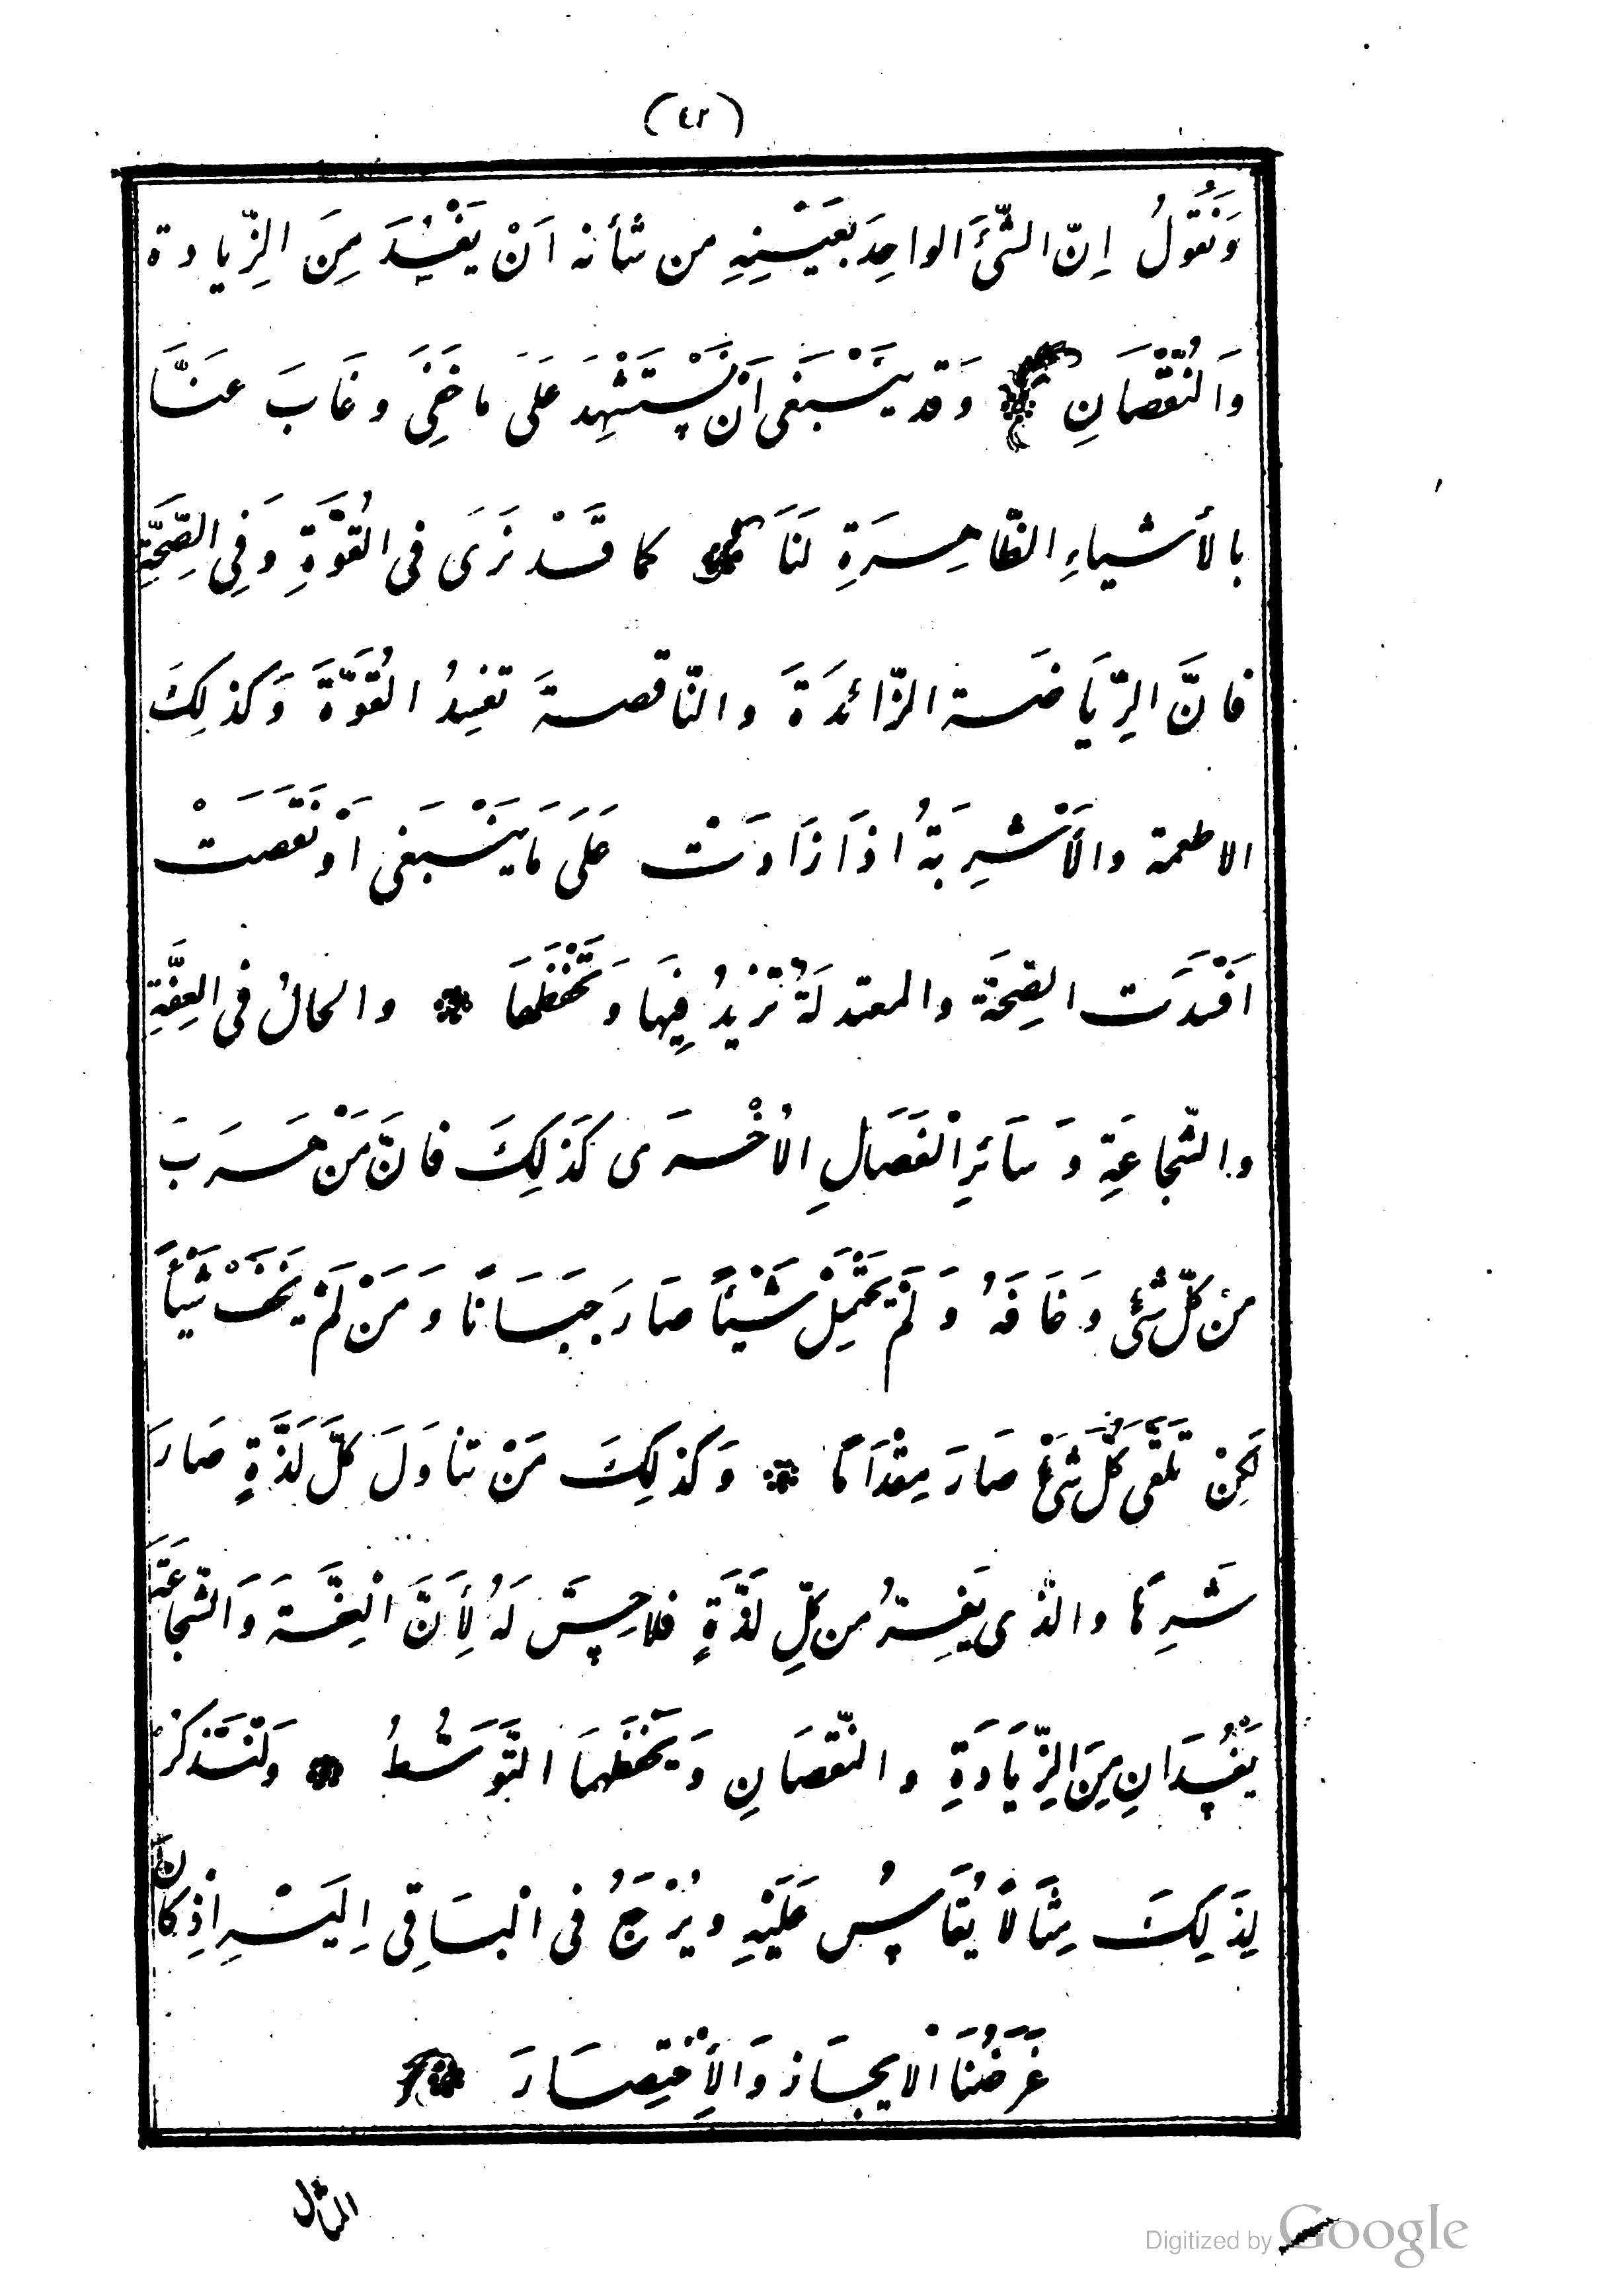 (٤٢)
وَنَقُولُ اِنّ الشّئَ الواحِدَ بعَيْنِهِ من شأنه اَنْ يَفْسُدَ مِنَ الزِّيادة
وَالنُّقْصَانِ وَقد يَنْبَغى اَنْ نَسْتَشْهِدَ عَلَى ما خَفِىَ وغَابَ عنَّا
بالأشياءِ الظّاهِرَةِ لَنَا كما قَدْ نَرَى فى القُوَّةِ وَفِى الصِّحَّةِ
فانَّ الرِّيَاضَة الزّائدَةَ والنّاقصةَ تفسدُ القُوَّةَ وَكذلِكَ
الاطعمة والأَشْرِبَةُ اذَا زَادَتْ عَلَى مَا يَنْبَغى اَوْ نَقَصَتْ
اَفْسَدَت الصِّحَّةَ والمعتدلَةُ تزْيدُ فِيَها وَتَحْفَظُهَا والحالُ فى العِفَّةِ
والشّجاعَةِ وَسَائرِ الفَصَالِ الاُخْرَى كَذلِكَ فانَّ مَنْ هَرَبَ
من كلّ شئٍ وَخَافَهُ وَلَمْ يَحْتَمِلْ شَيْئاً صَارَ جبَاناً وَمَنْ لَمْ يَخَفْ شَيْأً
لكِنْ تَلَقَّى كُلَّ شَئٍ صَارَ مِقْدَامًا وَكذلِكَ مَنْ تناوَلَ كلّ لَذَّةٍ صَارَ
شَرِهًا والذّى يَفِرُّ من كلِّ لَذَّةٍ فلاحِسَّ لَهُ لِأَنَّ العِفَّةَ وَالشّجاعَةَ
يَفْسُدَانِ مِنَ الزِّيَادَةِ والنّقصَانِ وَيَحْفَظَهمَا التَّوَسُّطُ وَلنَذكرْ
لِذَلِكَ مِثَالاً يُقَاسُ عَلَيْهِ ويُرْجَعُ فى البَاقِى اِليْهِ اِذْ كانَ
غَرَضُنَا الْايجَاز وَالِاْخْتِصَارَ
المثال
Digitized by Google